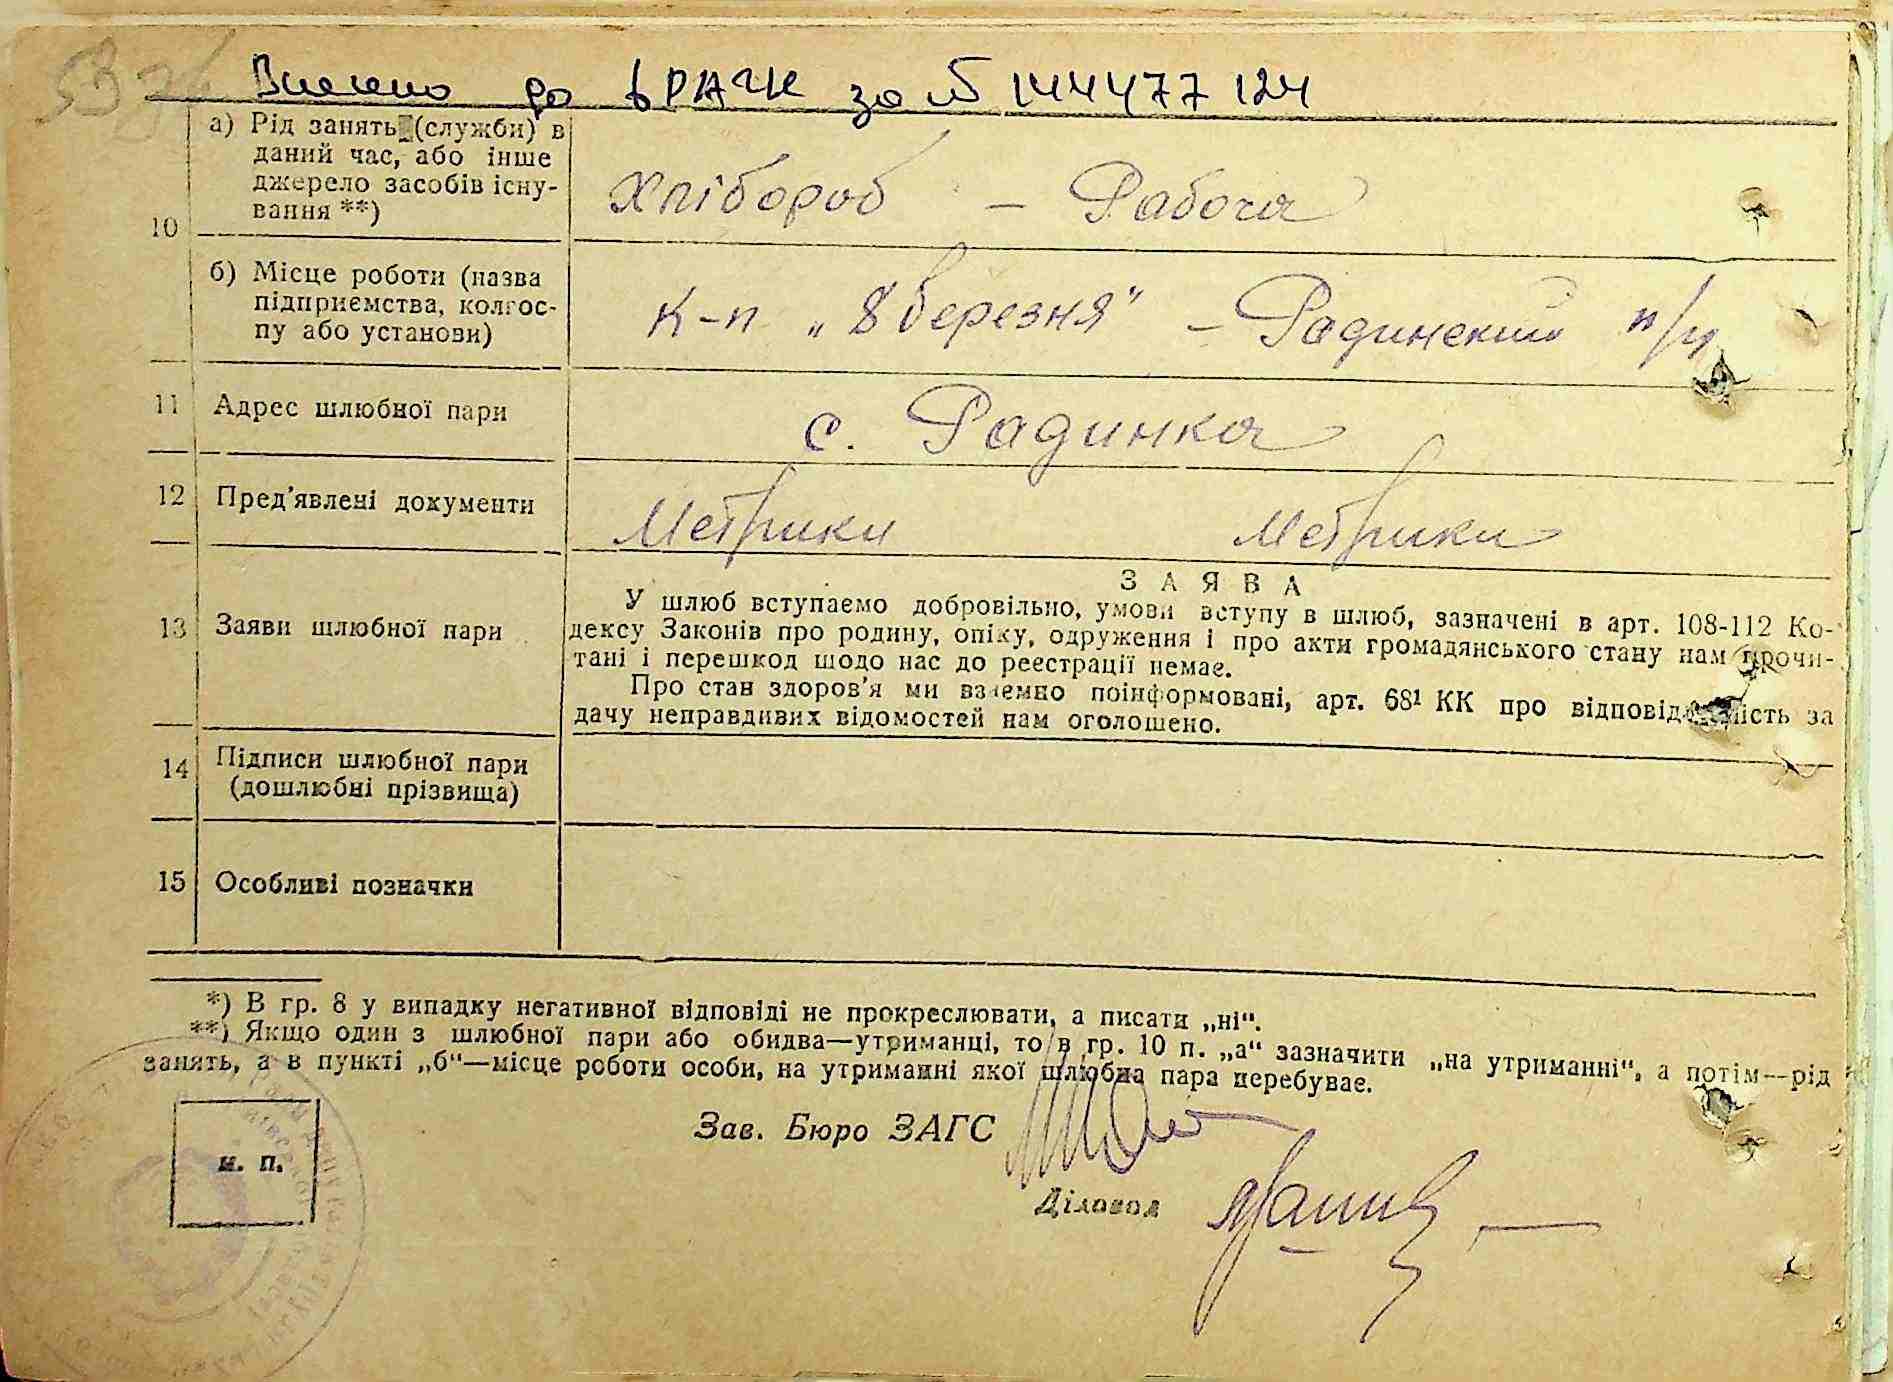 Внесено до ДРАЦС за № 144477124
а) Рід занять (служби) в
даний час, або інше
джерело засобів існу-
вання **)
10
Хлібороб – Рабоча
б) Місце роботи (назва
підприємства, колгос-
пу або установи)
К-п „8 березня" – Радинский п/ц
11 Адрес шлюбної пари
с. Радинка
12 Пред'явлені документи
Метрики Метрики
13 Заяви шлюбної пари
ЗАЯВА
У шлюб вступаємо добровільно, умови вступу в шлюб, зазначені в арт. 108-112 Ко-
дексу Законів про родину, опіку, одруження і про акти громадянського стану нам прочи-
тані і перешкод щодо нас до реєстрації немає.
Про стан здоров'я ми взаємно поінформовані, арт. 68¹ КК про відповідальність за
дачу неправдивих відомостей нам оголошено.
14 Підписи шлюбної пари
(дошлюбні прізвища)
15 Особливі позначки
*) В гр. 8 у випадку негативної відповіді не прокреслювати, а писати „ні".
**) Якщо один з шлюбної пари або обидва—утриманці, то в гр. 10 п. „а" зазначити „на утриманні", а потім—рід
занять, а в пункті „б"—місце роботи особи, на утриманні якої шлюбна пара перебуває.
Зав. Бюро ЗАГС
м. п.
Діловод